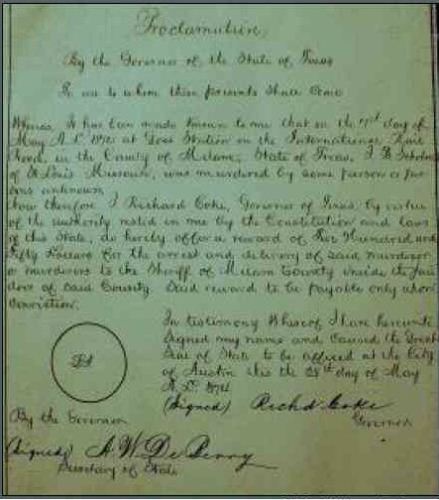 Proclamation,
By the Governor of the State of Texas
To all to whom these presents shall come
Whereas, it has been made known to me that on the day of
May A.D. 1874 at Station on the International Rail
Road, in the County of Milam, State of Texas, J. B.
of St Louis Missouri, was murdered by some person or per
sons unknown,
Now therefore I Richard Coke, Governor of Texas, by virtue
of the authority vested in me by the Constitution and laws
of this State, do hereby offer a reward of Two Hundred and
Fifty Dollars for the arrest and delivery of said murderer
or murderers to the Sheriff of Milam County inside the Jail
door of said County. Said reward to be payable only upon
Conviction.
In testimony Whereof I have hereunto
signed my name and caused the Great
Seal of State to be affixed at the City
of Austin this the 28th day of May
A.D. 1874
(Signed) Richd Coke
Governor
By the Governor
(Signed) A. W. DeBerry
Secretary of State